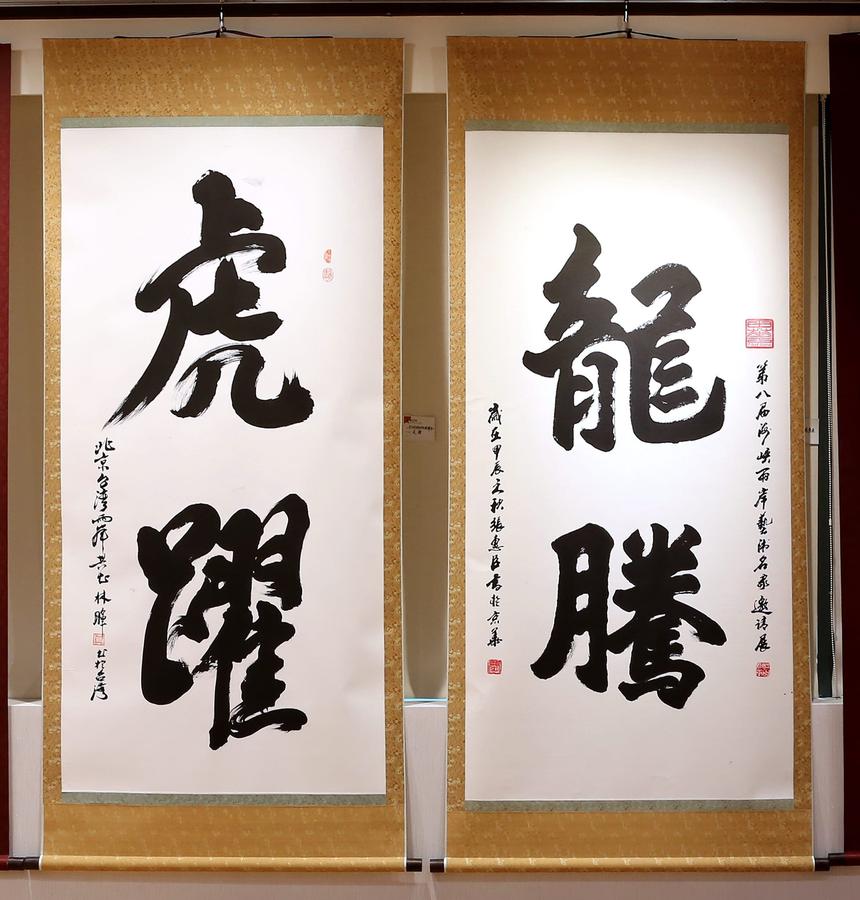 龍騰
第八屆海峽兩岸藝術名家邀請展
歲在甲辰之秋張惠臣書於京華
虎躍
北京台灣兩岸共書林
書於台灣